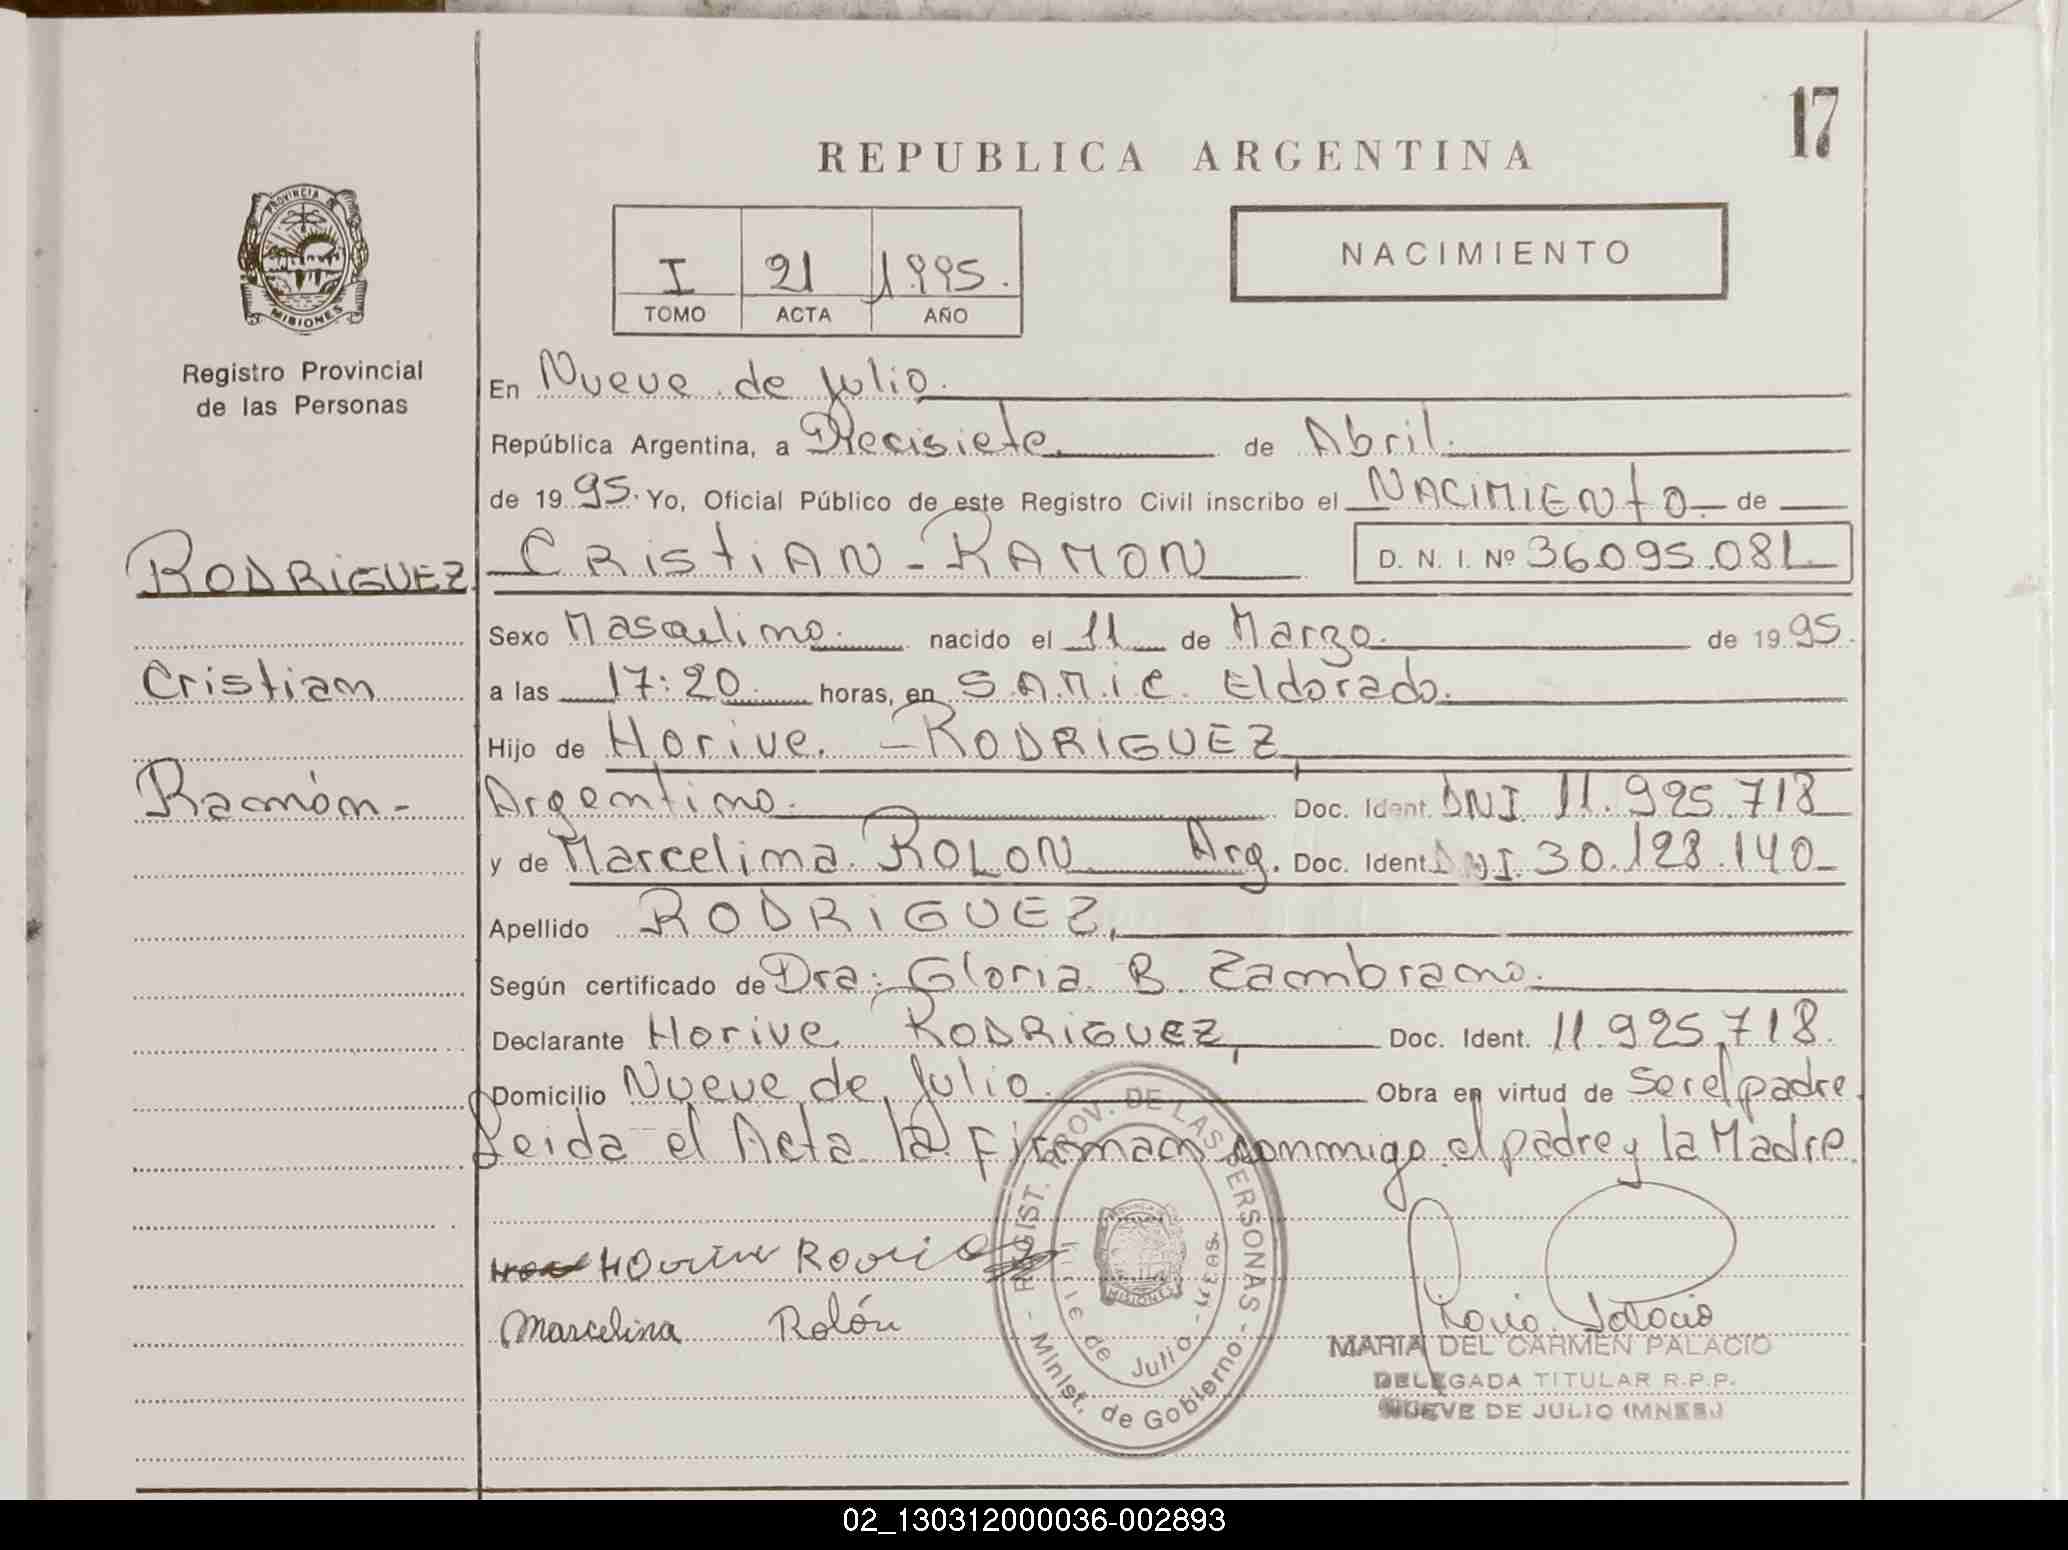 17
REPUBLICA ARGENTINA
PROVINCIA DE
MISIONES
Registro Provincial
de las Personas
NACIMIENTO
I 21 1995.
TOMO ACTA AÑO
En Nueve de Julio.
República Argentina, a Diecisiete de Abril.
de 1995. Yo, Oficial Público de este Registro Civil inscribo el NACIMIENTO de
RODRIGUEZ CRISTIAN - RAMON D. N. I. Nº 36.095.081
Sexo Masculino. nacido el 11 de Marzo. de 1995.
Cristian a las 17:20 horas, en S.A.M.I.C. Eldorado.
Hijo de Horive. - RODRIGUEZ
Ramón - Argentino. Doc. Ident. DNI 11.925.718
y de Marcelina ROLON Arg. Doc. Ident. DNI. 30.128.140-
Apellido RODRIGUEZ,
Según certificado de Dra: Gloria B. Zambrano.
Declarante Horive RODRIGUEZ, Doc. Ident. 11.925.718.
Domicilio Nueve de Julio. Obra en virtud de ser el padre.
Leida el Acta la firman conmigo el padre y la Madre.
REGIST. PROV. DE LAS PERSONAS - Minist. de Gobierno -
de Julio - Mnes.
MISIONES
Marcelina Rolón
María Palacio
MARIA DEL CARMEN PALACIO
DELEGADA TITULAR R.P.P.
NUEVE DE JULIO (MNES.)
02_130312000036-002893